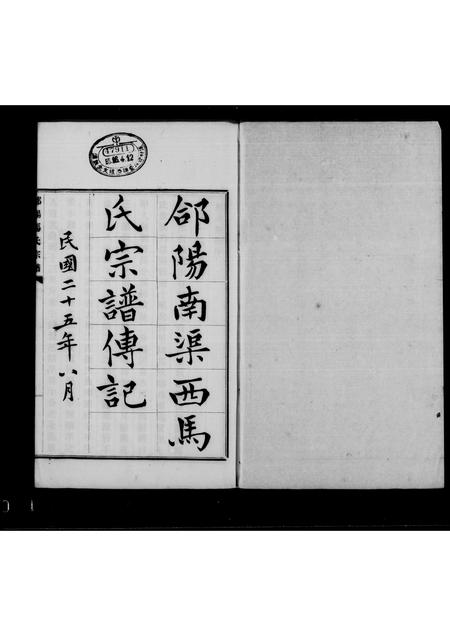 郃陽南渠西馬
氏宗譜傳記
民國二十五年八月
47911